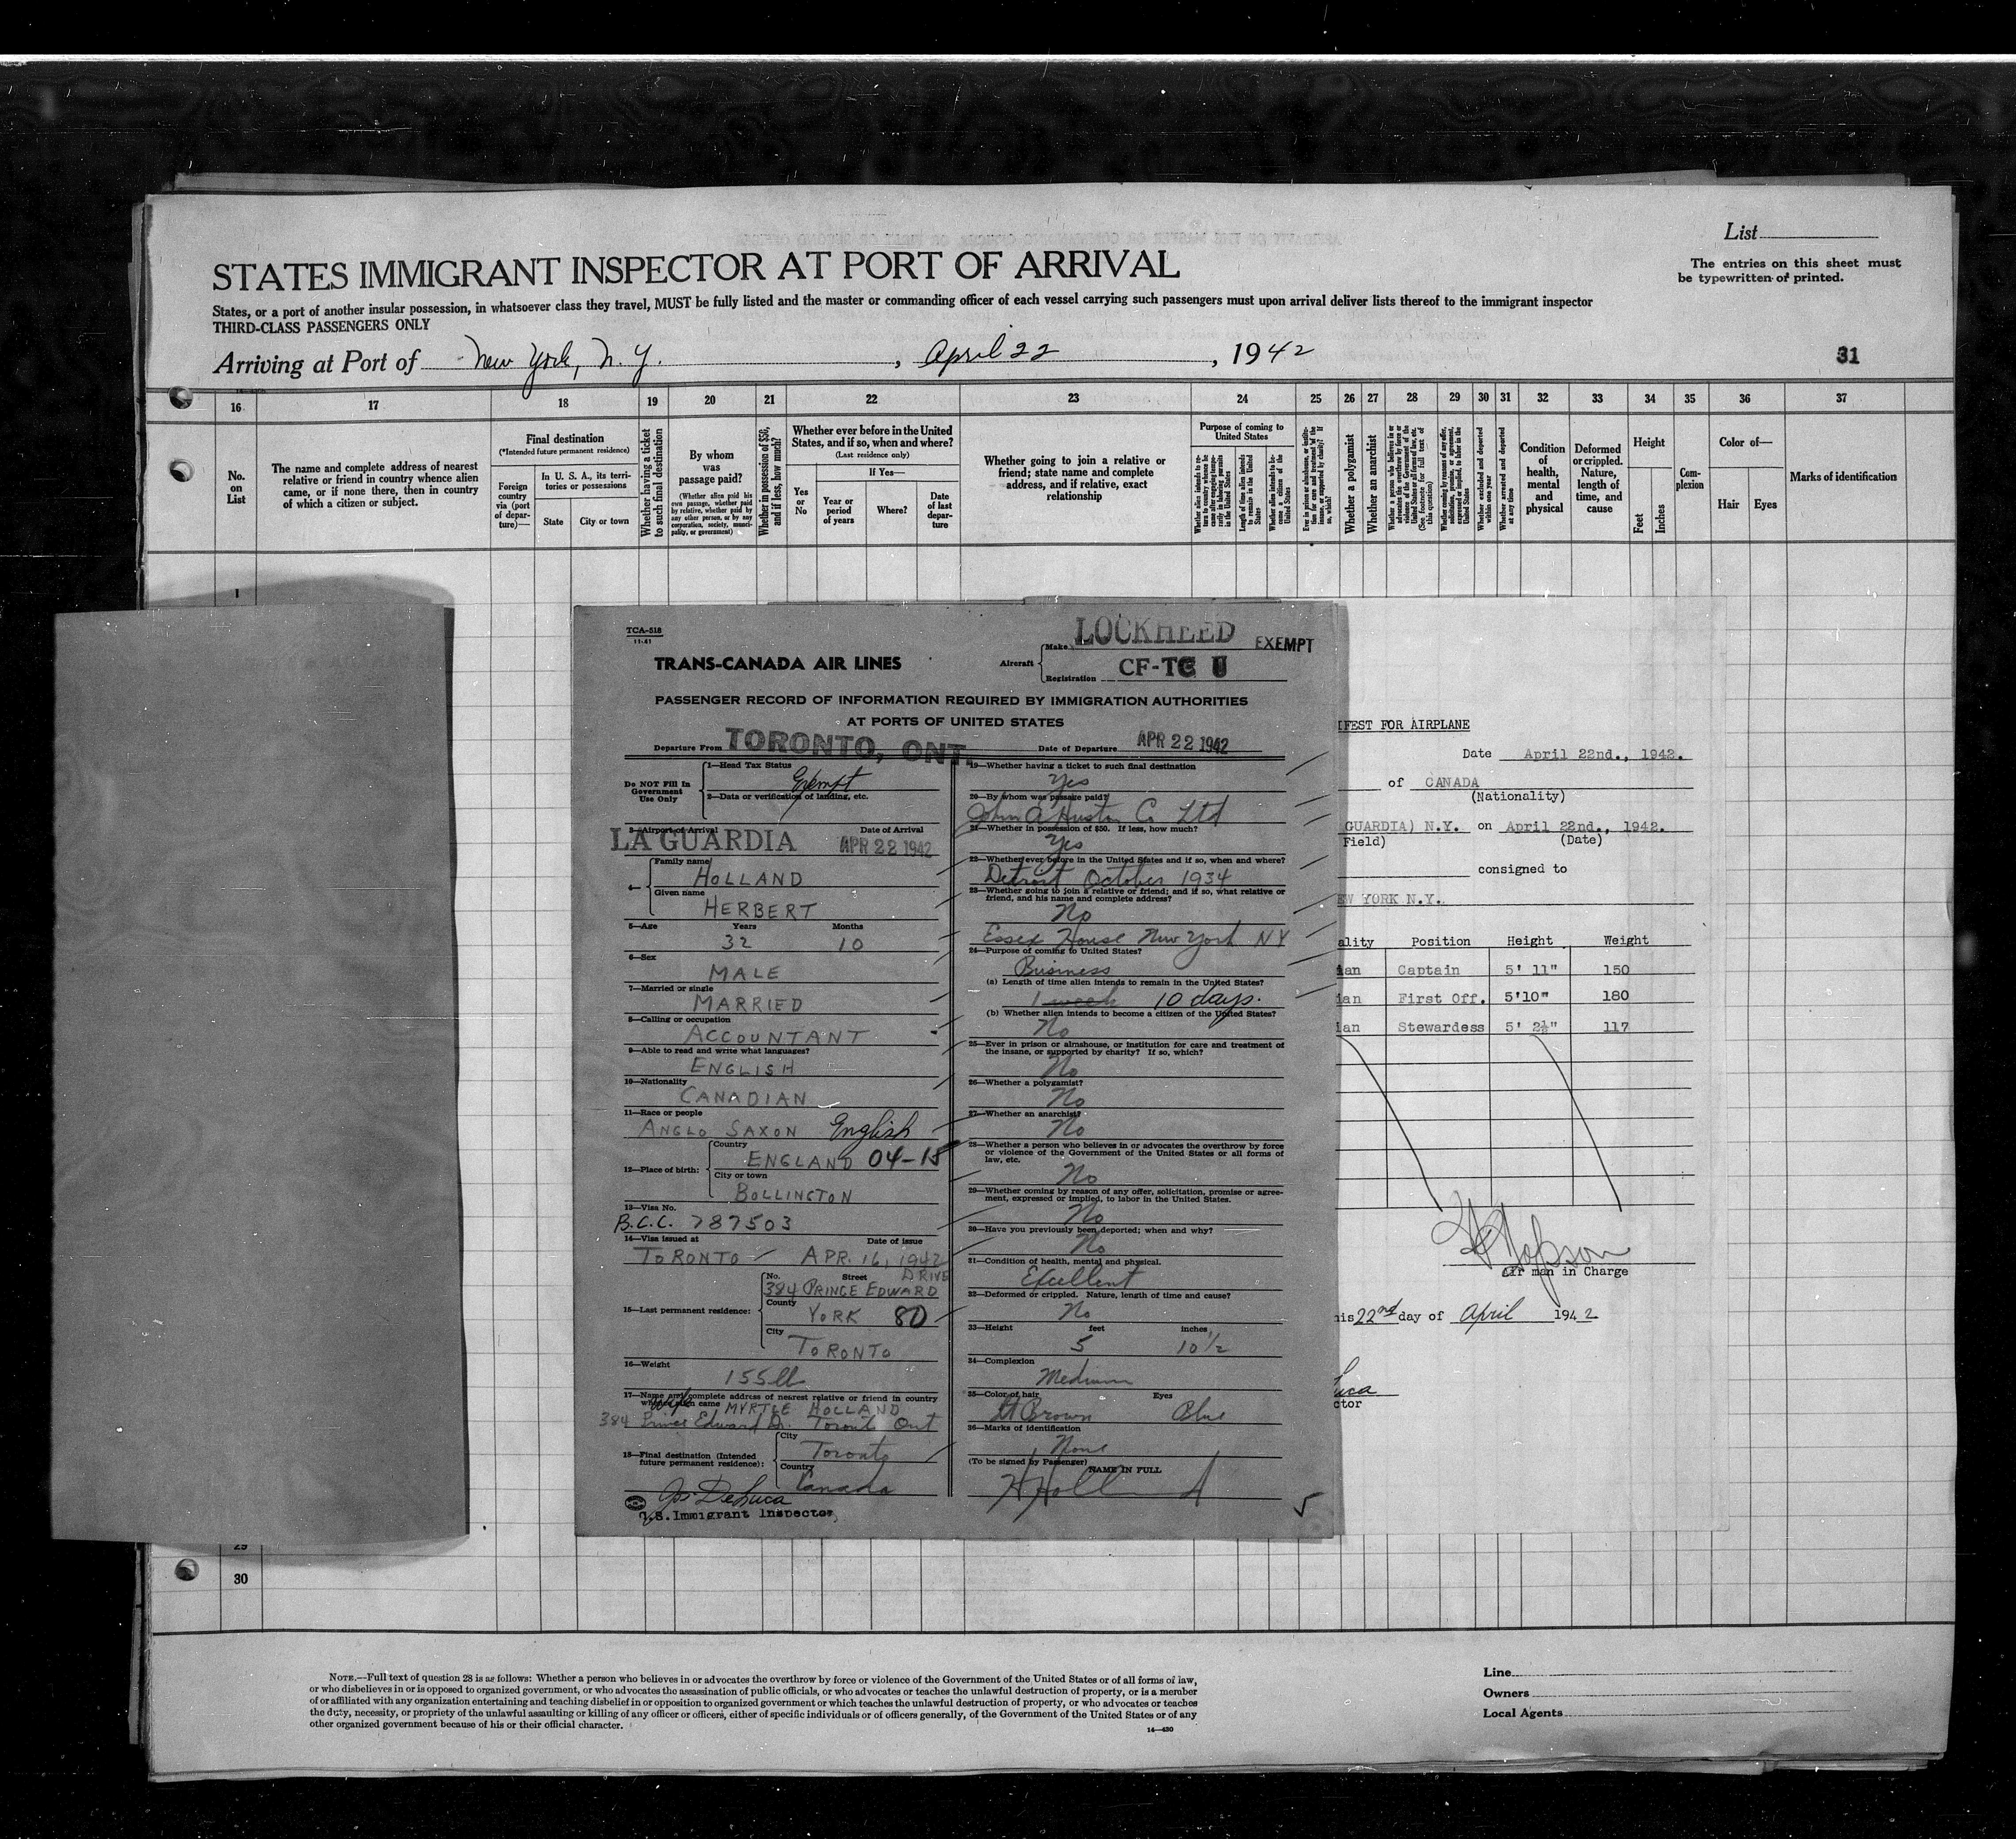 List
STATES IMMIGRANT INSPECTOR AT PORT OF ARRIVAL
The entries on this sheet must
be typewritten or printed.
States, or a port of another insular possession, in whatsoever class they travel, MUST be fully listed and the master or commanding officer of each vessel carrying such passengers must upon arrival deliver lists thereof to the immigrant inspector
THIRD-CLASS PASSENGERS ONLY
Arriving at Port of New York, N.Y., April 22, 1942
31
16 17 18 19 20 21 22 23 24 25 26 27 28 29 30 31 32 33 34 35 36 37
No.
on
List
The name and complete address of nearest
relative or friend in country whence alien
came, or if none there, then in country
of which a citizen or subject.
Final destination
(*Intended future permanent residence)
Foreign
country
via (port
of depar-
ture)—
In U. S. A., its terri-
tories or possessions
State
City or town
Whether having a ticket
to such final destination
By whom
was
passage paid?
(Whether alien paid his
own passage, whether paid
by relative, whether paid by
any other person, or by any
corporation, society, munici-
pality, or government)
Whether in possession of $50,
and if less, how much?
Whether ever before in the United
States, and if so, when and where?
(Last residence only)
If Yes—
Yes
or
No
Year or
period
of years
Where?
Date
of last
depar-
ture
Whether going to join a relative or
friend; state name and complete
address, and if relative, exact
relationship
Purpose of coming to
United States
Length of time alien intends
to remain in the United
States
Whether alien intends to be-
come a citizen of the
United States
Whether a polygamist
Whether an anarchist
Whether excluded and deported
within one year
Whether arrested and deported
at any time
Condition
of
health,
mental
and
physical
Deformed
or crippled.
Nature,
length of
time, and
cause
Height
Feet
Inches
Com-
plexion
Color of—
Hair
Eyes
Marks of identification
1
TCA-518
11-41
TRANS-CANADA AIR LINES
Aircraft
Make LOCKHEED
EXEMPT
Registration CF-TC U
PASSENGER RECORD OF INFORMATION REQUIRED BY IMMIGRATION AUTHORITIES
AT PORTS OF UNITED STATES
Departure From TORONTO, ONT.
Date of Departure APR 22 1942
Do NOT Fill In
Government
Use Only
1—Head Tax Status
Exempt
2—Data or verification of landing, etc.
3—Airport of Arrival
Date of Arrival
LA GUARDIA APR 22 1942
4—
Family name
HOLLAND
Given name
HERBERT
5—Age Years Months
32 10
6—Sex
MALE
7—Married or single
MARRIED
8—Calling or occupation
ACCOUNTANT
9—Able to read and write what languages?
ENGLISH
10—Nationality
CANADIAN
11—Race or people
ANGLO SAXON English
12—Place of birth:
Country
ENGLAND 04-18
City or town
BOLLINGTON
13—Visa No.
B.C.C. 787503
14—Visa issued at Date of issue
TORONTO APR. 16, 1942
15—Last permanent residence:
No. Street DRIVE
384 PRINCE EDWARD
County
YORK 80
City
TORONTO
16—Weight
155 lb
17—Name and complete address of nearest relative or friend in country
whence alien came
wife MYRTLE HOLLAND
384 Prince Edward Dr. Toronto Ont
18—Final destination (Intended
future permanent residence):
City
Toronto
Country
Canada
Jos. DeLuca
U.S. Immigrant Inspector
19—Whether having a ticket to such final destination
Yes
20—By whom was passage paid?
John A Huston Co Ltd
21—Whether in possession of $50. If less, how much?
Yes
22—Whether ever before in the United States and if so, when and where?
Detroit October 1934
23—Whether going to join a relative or friend; and if so, what relative or
friend, and his name and complete address?
No
Essex House New York NY
24—Purpose of coming to United States?
Business
(a) Length of time alien intends to remain in the United States?
1 week 10 days.
(b) Whether alien intends to become a citizen of the United States?
No
25—Ever in prison or almshouse, or institution for care and treatment of
the insane, or supported by charity? If so, which?
No
26—Whether a polygamist?
No
27—Whether an anarchist?
No
28—Whether a person who believes in or advocates the overthrow by force
or violence of the Government of the United States or all forms of
law, etc.
No
29—Whether coming by reason of any offer, solicitation, promise or agree-
ment, expressed or implied, to labor in the United States.
No
30—Have you previously been deported; when and why?
No
31—Condition of health, mental and physical.
Excellent
32—Deformed or crippled. Nature, length of time and cause?
No
33—Height feet inches
5 10½
34—Complexion
Medium
35—Color of hair Eyes
Lt Brown Blue
36—Marks of identification
None
(To be signed by Passenger)
NAME IN FULL
H Holland
5
IFEST FOR AIRPLANE
Date April 22nd., 1942.
of CANADA
(Nationality)
GUARDIA) N.Y. on April 22nd., 1942.
Field) (Date)
consigned to
EW YORK N.Y.
ality Position Height Weight
ian Captain 5' 11" 150
ian First Off. 5'10" 180
ian Stewardess 5' 2½" 117
Air man in Charge
his 22nd day of April 1942
uca
ctor
29
30
NOTE.—Full text of question 28 is as follows: Whether a person who believes in or advocates the overthrow by force or violence of the Government of the United States or of all forms of law,
or who disbelieves in or is opposed to organized government, or who advocates the assassination of public officials, or who advocates or teaches the unlawful destruction of property, or is a member
of or affiliated with any organization entertaining and teaching disbelief in or opposition to organized government or which teaches the unlawful destruction of property, or who advocates or teaches
the duty, necessity, or propriety of the unlawful assaulting or killing of any officer or officers, either of specific individuals or of officers generally, of the Government of the United States or of any
other organized government because of his or their official character.
14—430
Line
Owners
Local Agents